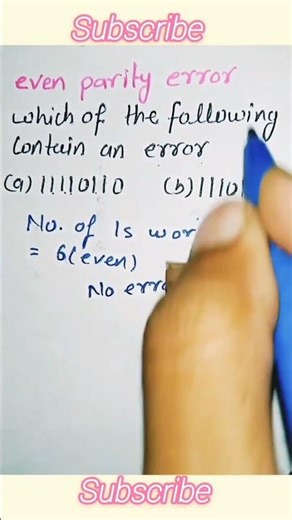 Subscribe
even parity error
which of the following
Contain an error
(a) 11110110 (b) 1110
No. of 1s
= 6(even)
No
Subscribe